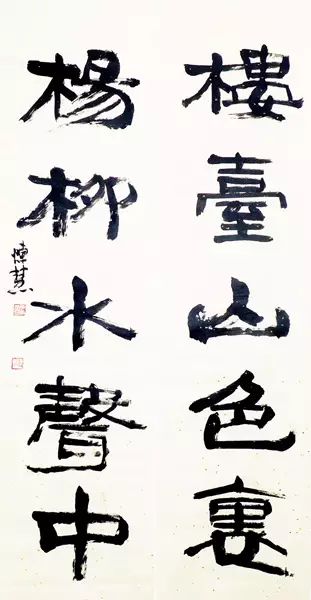 樓臺山色裏
楊柳水聲中
陳慧